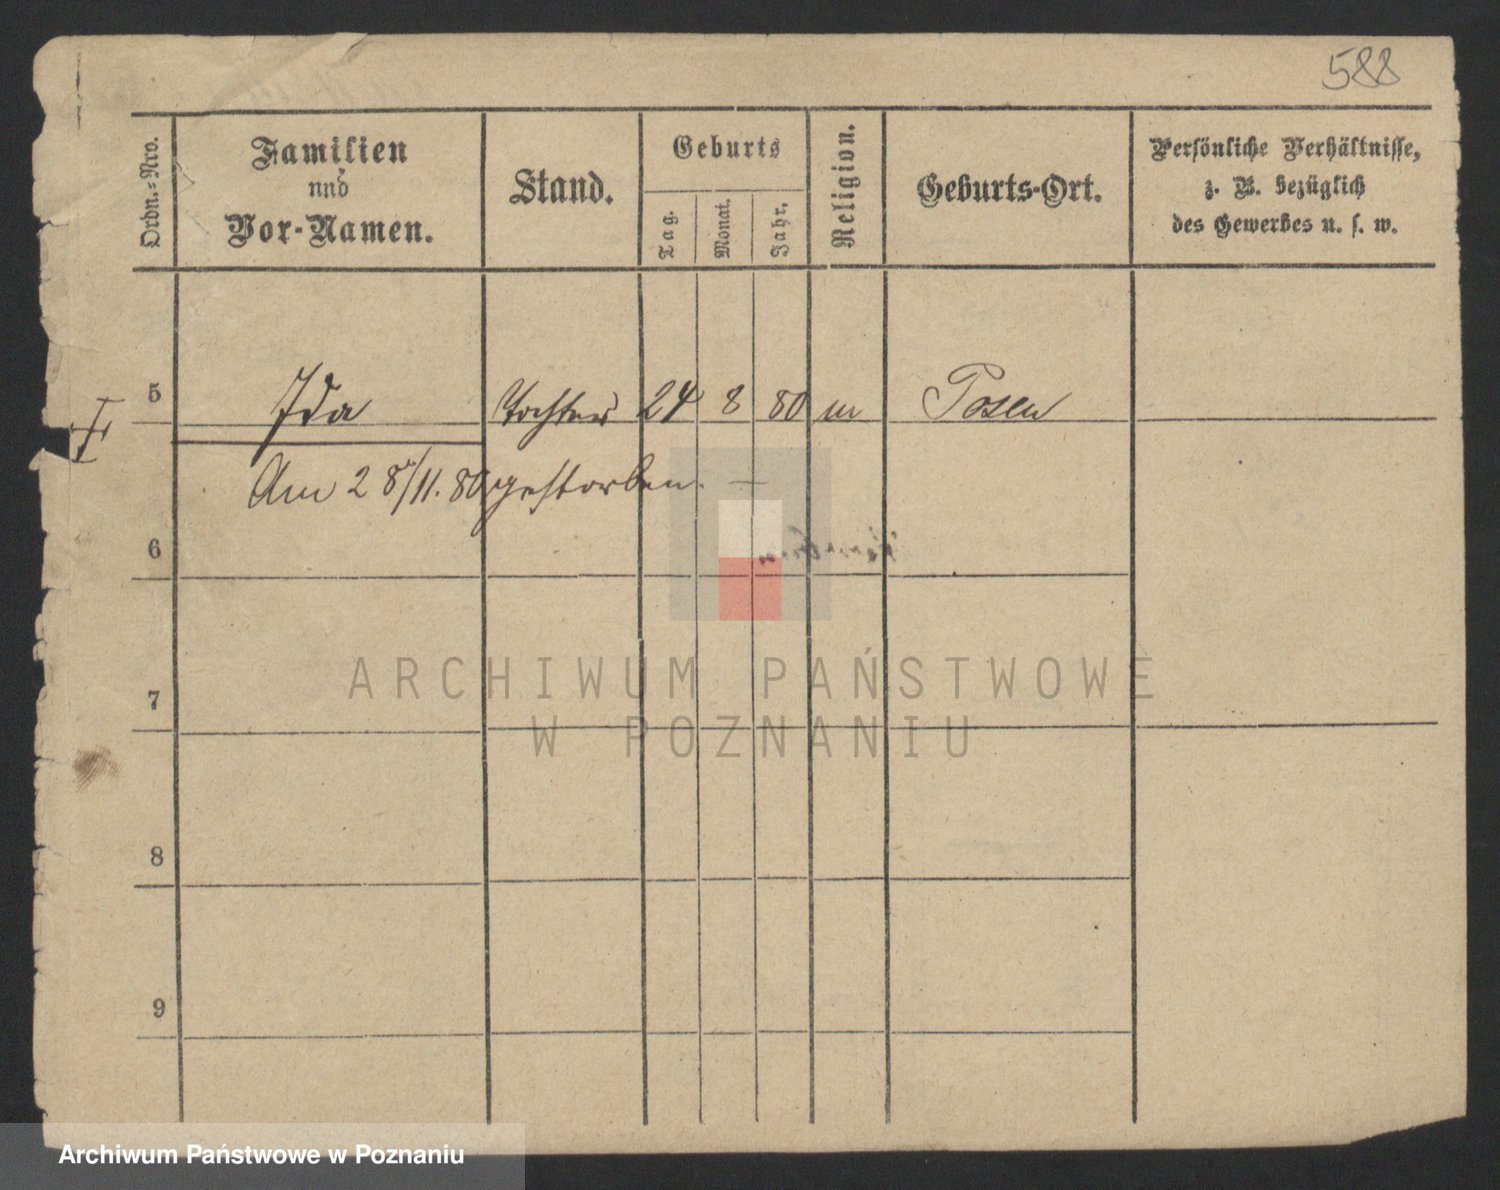 588
Ordn.-Nro.
Familien
und
Vor-Namen.
Stand.
Geburts
Tag.
Monat.
Jahr.
Religion.
Geburts-Ort.
Persönliche Verhältnisse,
z. B. bezüglich
des Gewerbes u. s. w.
5 Ida Tochter 24 8 80 m Posen
Am 28/11. 80 gestorben. —
6
7
8
9
ARCHIWUM PAŃSTWOWE
W POZNANIU
Archiwum Państwowe w Poznaniu